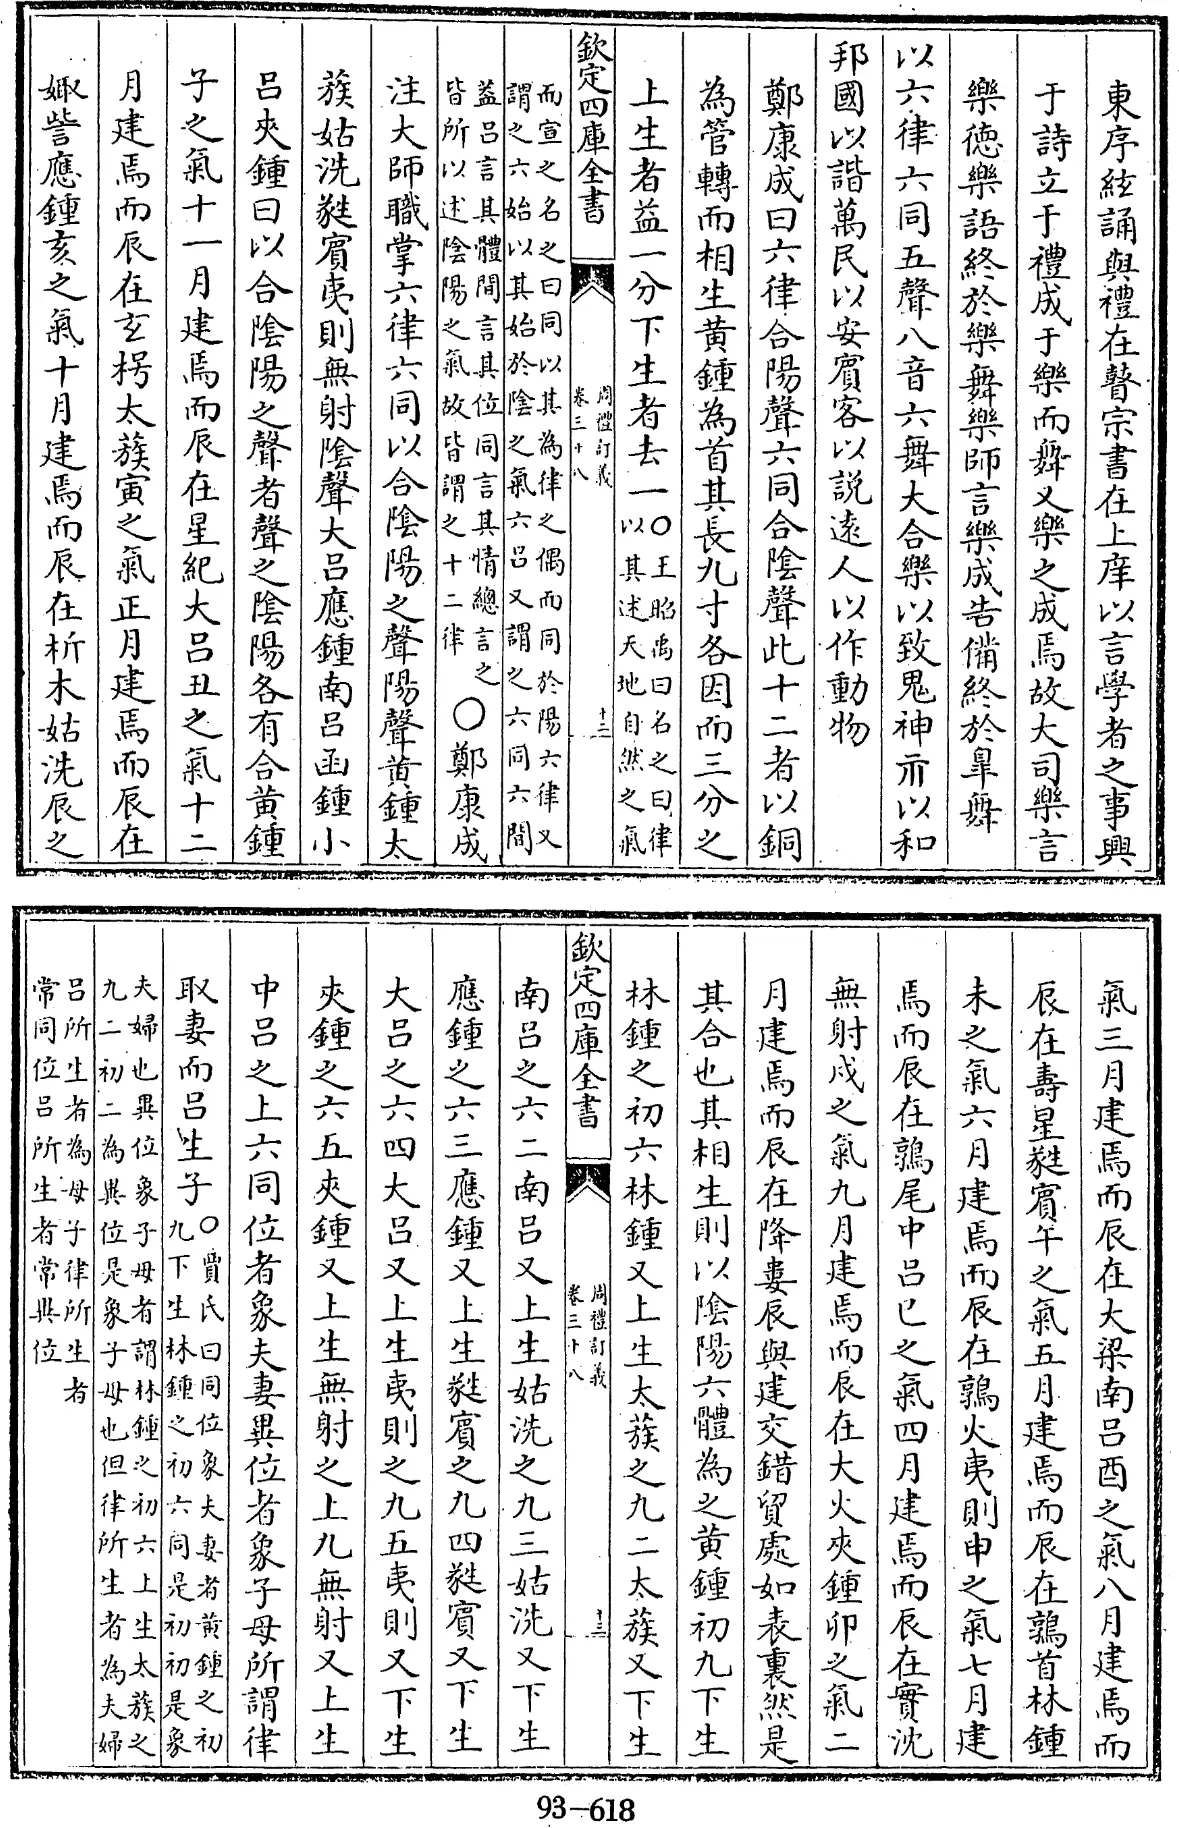 東序絃誦與禮在瞽宗書在上庠以言學者之事興
于詩立于禮成于樂而舞又樂之成焉故大司樂言
樂德樂語終於樂舞樂師言樂成告備終於皐舞
以六律六同五聲八音六舞大合樂以致鬼神示以和
邦國以諧萬民以安賓客以説遠人以作動物
鄭康成曰六律合陽聲六同合陰聲此十二者以銅
為管轉而相生黄鍾為首其長九寸各因而三分之
上生者益一分下生者去一〇王昭禹曰名之曰律
以其述天地自然之氣
欽定四庫全書
周禮訂義
卷三十八
十二
而宣之名之曰同以其為律之偶而同於陽六律又
謂之六始以其始於陰之氣六呂又謂之六同六間
葢呂言其體間言其位同言其情總言之
皆所以述陰陽之氣故皆謂之十二律
〇鄭康成
注大師職掌六律六同以合陰陽之聲陽聲黄鍾太
蔟姑洗蕤賓夷則無射陰聲大呂應鍾南呂函鍾小
呂夾鍾曰以合陰陽之聲者聲之陰陽各有合黄鍾
子之氣十一月建焉而辰在星紀大呂丑之氣十二
月建焉而辰在玄枵太蔟寅之氣正月建焉而辰在
娵訾應鍾亥之氣十月建焉而辰在析木姑洗辰之
氣三月建焉而辰在大梁南呂酉之氣八月建焉而
辰在壽星蕤賓午之氣五月建焉而辰在鶉首林鍾
未之氣六月建焉而辰在鶉火夷則申之氣七月建
焉而辰在鶉尾中呂巳之氣四月建焉而辰在實沈
無射戍之氣九月建焉而辰在大火夾鍾卯之氣二
月建焉而辰在降婁辰與建交錯貿處如表裏然是
其合也其相生則以陰陽六體為之黄鍾初九下生
林鍾之初六林鍾又上生太蔟之九二太蔟又下生
欽定四庫全書
周禮訂義
卷三十八
十三
南呂之六二南呂又上生姑洗之九三姑洗又下生
應鍾之六三應鍾又上生蕤賓之九四蕤賓又下生
大呂之六四大呂又上生夷則之九五夷則又下生
夾鍾之六五夾鍾又上生無射之上九無射又上生
中呂之上六同位者象夫妻異位者象子母所謂律
取妻而呂生子〇賈氏曰同位象夫妻者黄鍾之初
九下生林鍾之初六同是初初是象
夫婦也異位象子母者謂林鍾之初六上生太蔟之
九二初二為異位是象子母也但律所生者為夫婦
呂所生者為母子律所生者
常同位呂所生者常異位
93-618